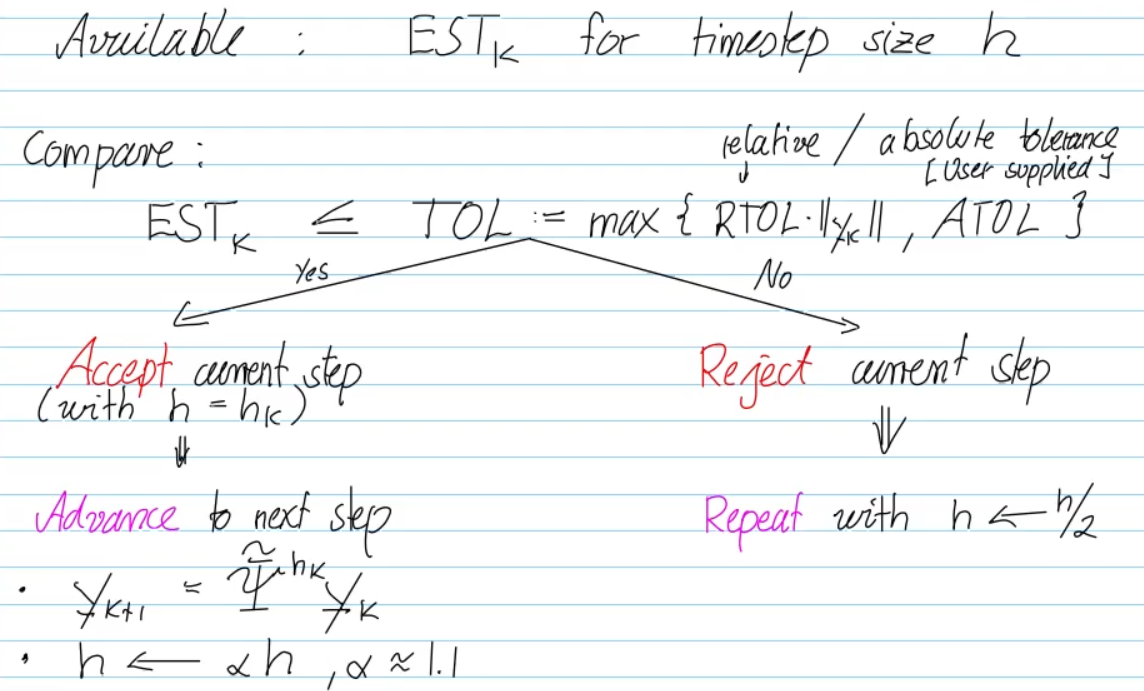 Available : EST_K for timestep size h
relative / absolute tolerance
Compare : [User supplied]
EST_K ≤ TOL := max { RTOL·‖y_K‖ , ATOL }
Yes No
Accept current step Reject current step
(with h = h_K)
⇓ ⇓
Advance to next step Repeat with h ← h/2
· y_{K+1} = \tilde{Ψ}^{h_K} y_K
· h ← αh , α ≈ 1.1